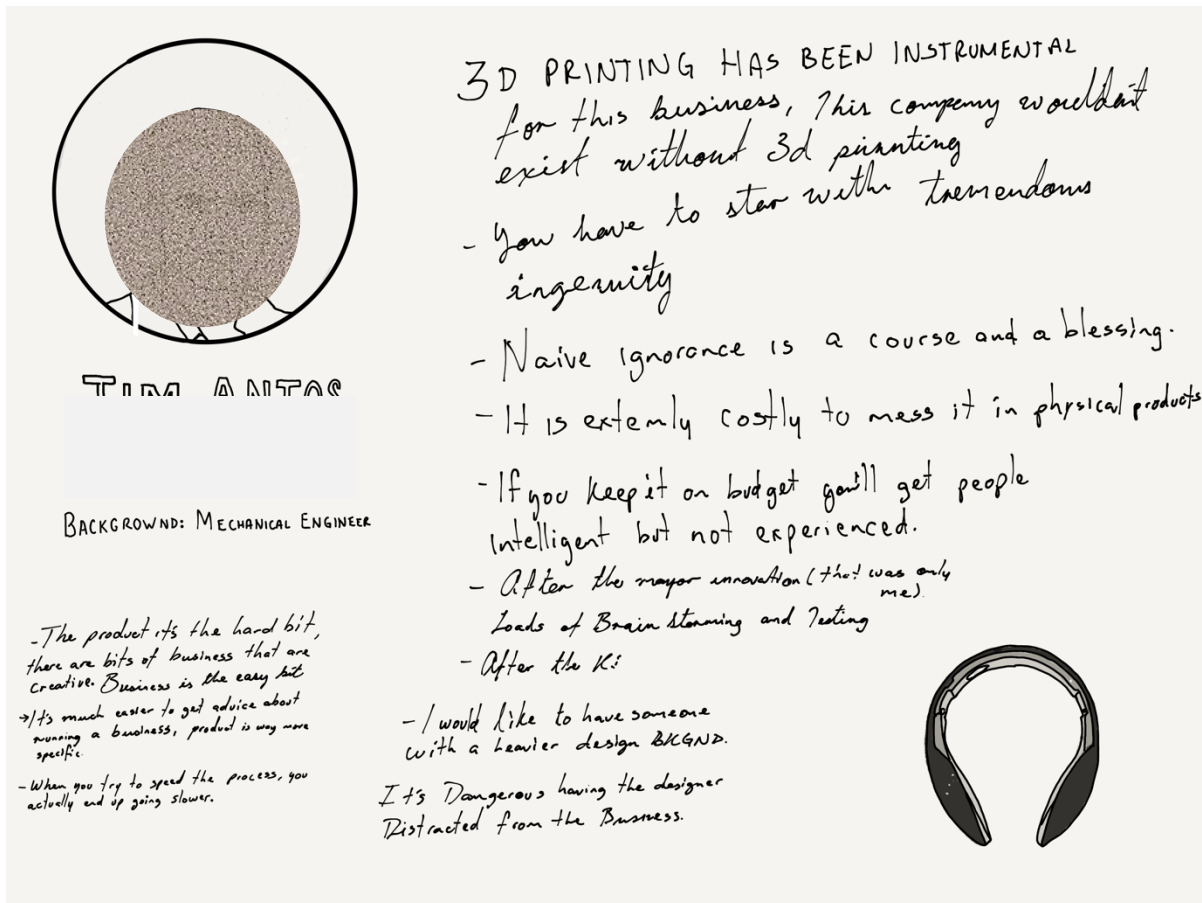 TIM ANTOS
BACKGROWND: MECHANICAL ENGINEER
- The product it's the hard bit,
there are bits of business that are
creative. Business is the easy bit
→ It's much easier to get advice about
running a business, product is way more
specific.
- When you try to speed the process, you
actually end up going slower.
3D PRINTING HAS BEEN INSTRUMENTAL
for this business, This company wouldn't
exist without 3d prinnting
- You have to star with tremendous
ingenuity
- Naive ignorance is a course and a blessing.
- It is extemly costly to mess it in physical products
- If you keep it on budget you'll get people
intelligent but not experienced.
- After the mayor innovation (that was only
me).
Loads of Brain Storming and Testing
- After the Ki
- I would like to have someone
with a heavier design BKGND.
It's Dangerous having the designer
Distracted from the Business.